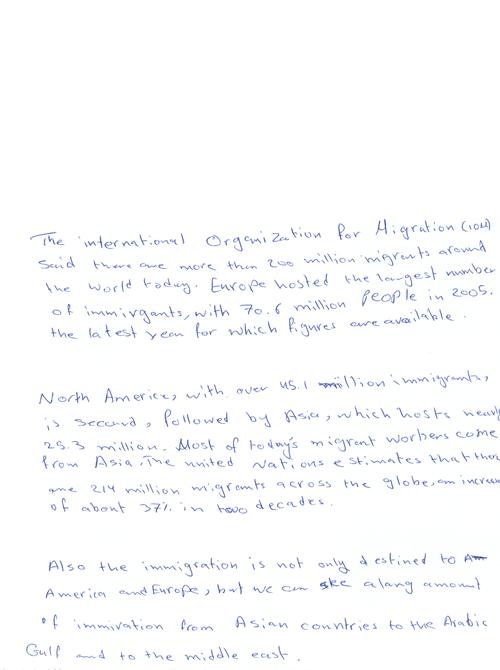 The international Organization for Migration (IOM)
Said there are more than 200 million migrants around
the world today. Europe hosted the largest number
of immirgants, with 70.6 million people in 2005.
the latest year for which figures are available.
North America, with over 45.1 million immigrants,
is second, followed by Asia, which hosts nearly
25.3 million. Most of today's migrant workers come
from Asia. The united Nations estimates that there
are 214 million migrants across the globe, an increase
of about 37% in two decades.
Also the immigration is not only destined to
America and Europe, but we can see alang amount
of immivation from Asian countries to the Arabic
Gulf and to the middle east.